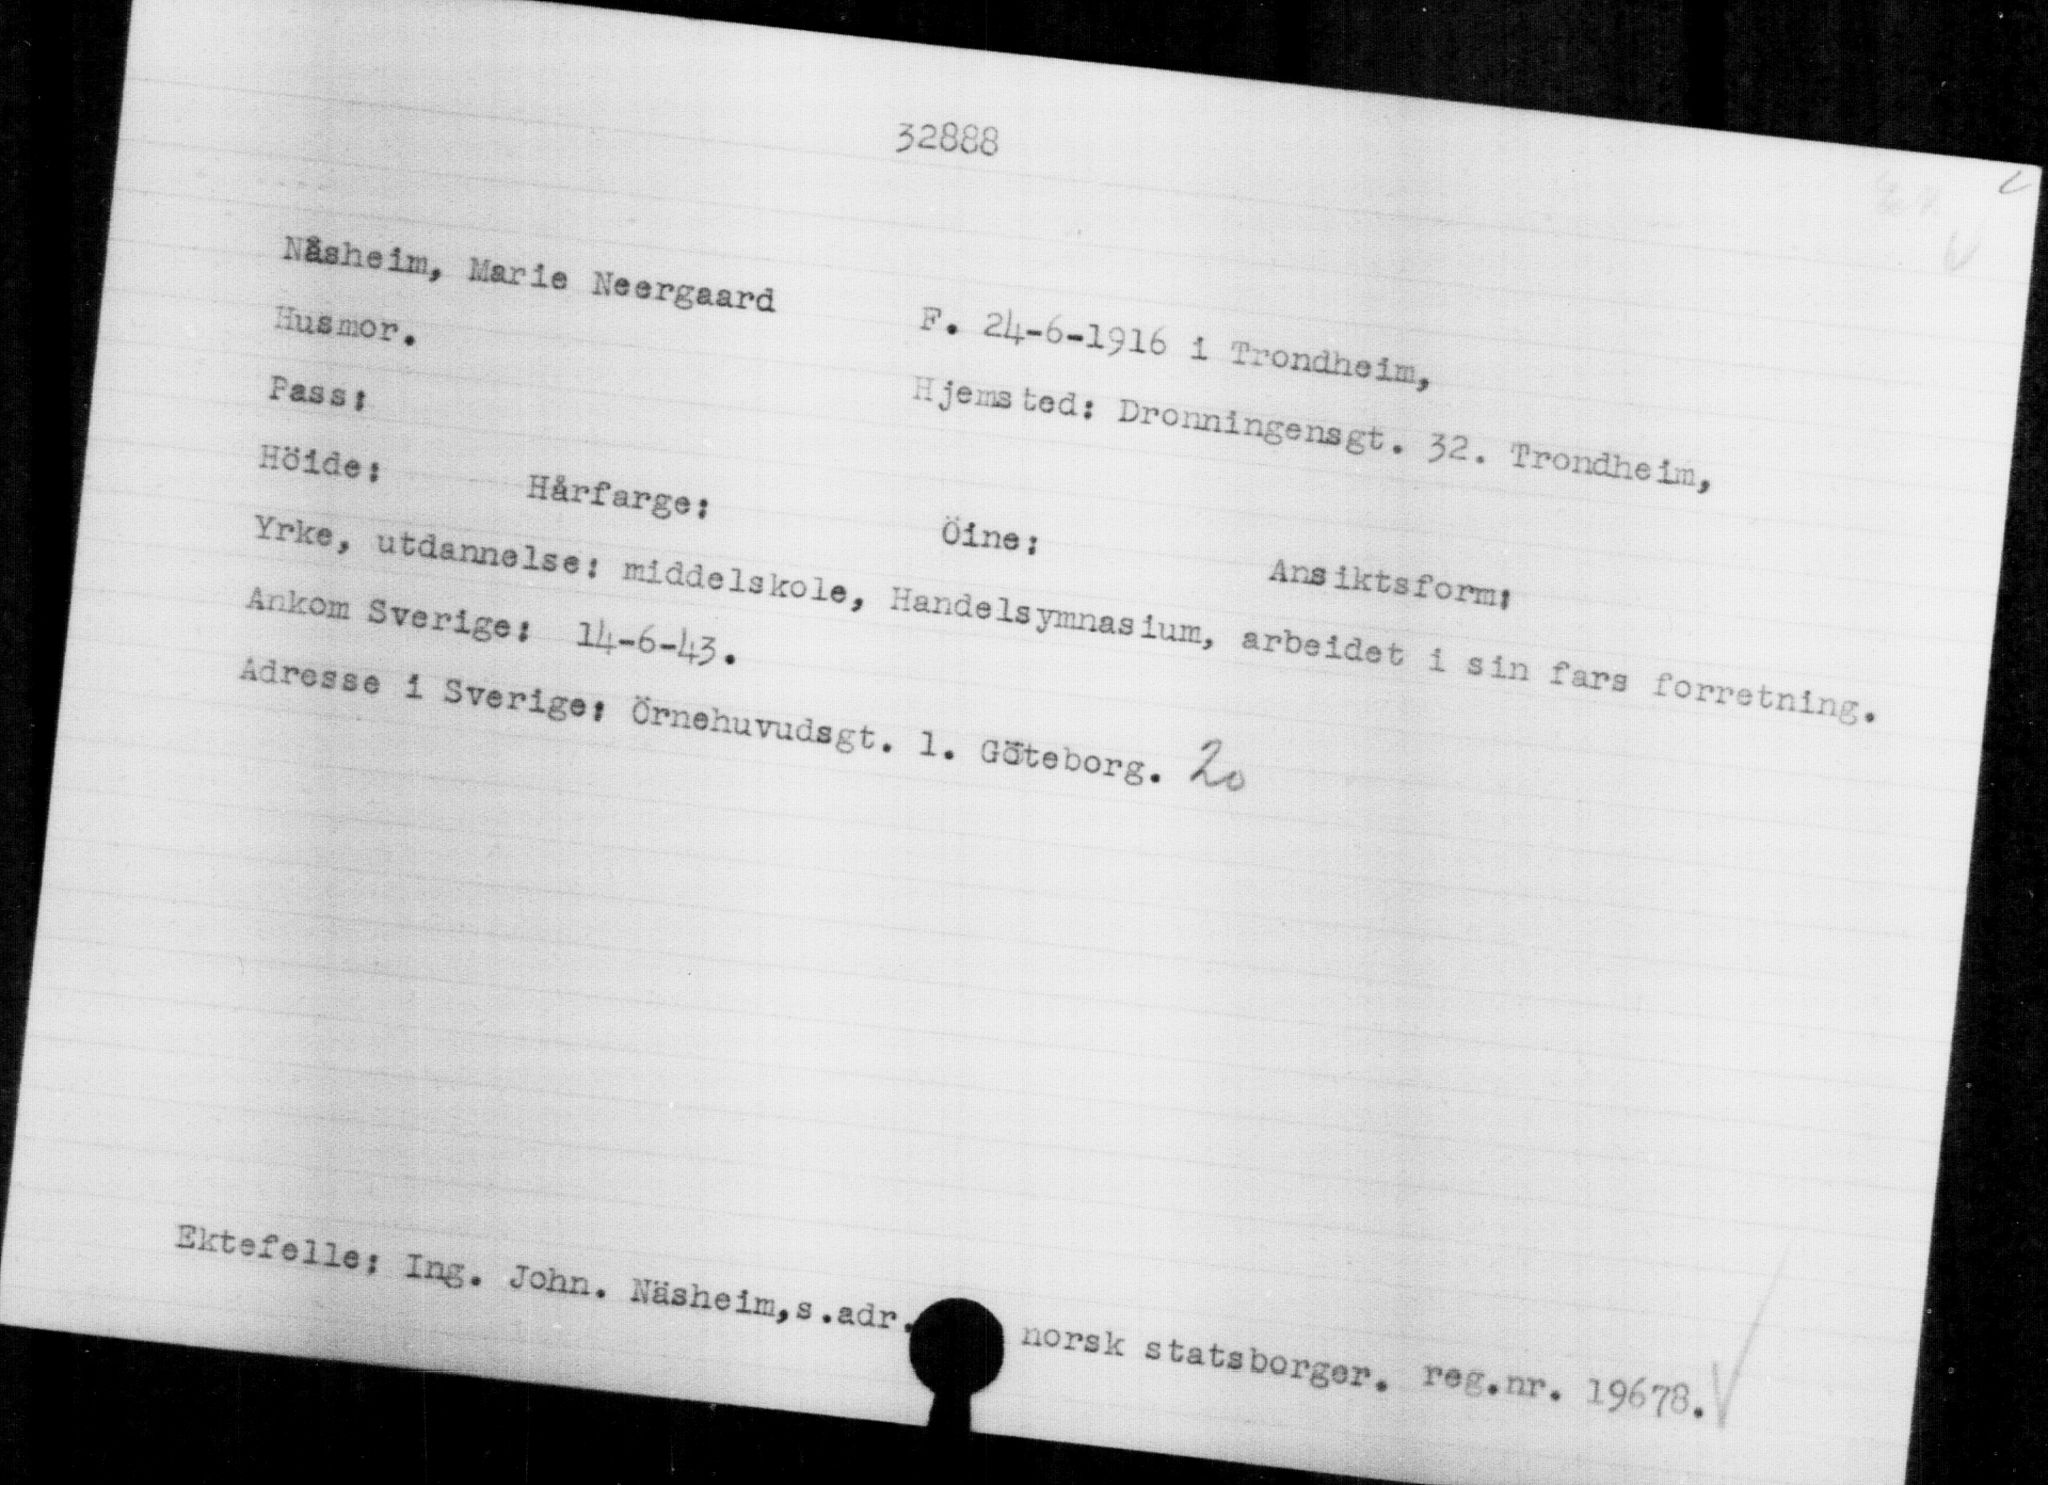 32888
Näsheim, Marie Neergaard
F. 24-6-1916 i Trondheim,
Husmor.
Hjemsted: Dronningensgt. 32. Trondheim,
Pass:
Höide: Hårfarge: Öine: Ansiktsform:
Yrke, utdannelse: middelskole, Handelsymnasium, arbeidet i sin fars forretning.
Ankom Sverige: 14-6-43.
Adresse i Sverige: Örnehuvudsgt. 1. Göteborg. 20
Ektefelle: Ing. John. Näsheim,s.adr. norsk statsborger. reg.nr. 19678.